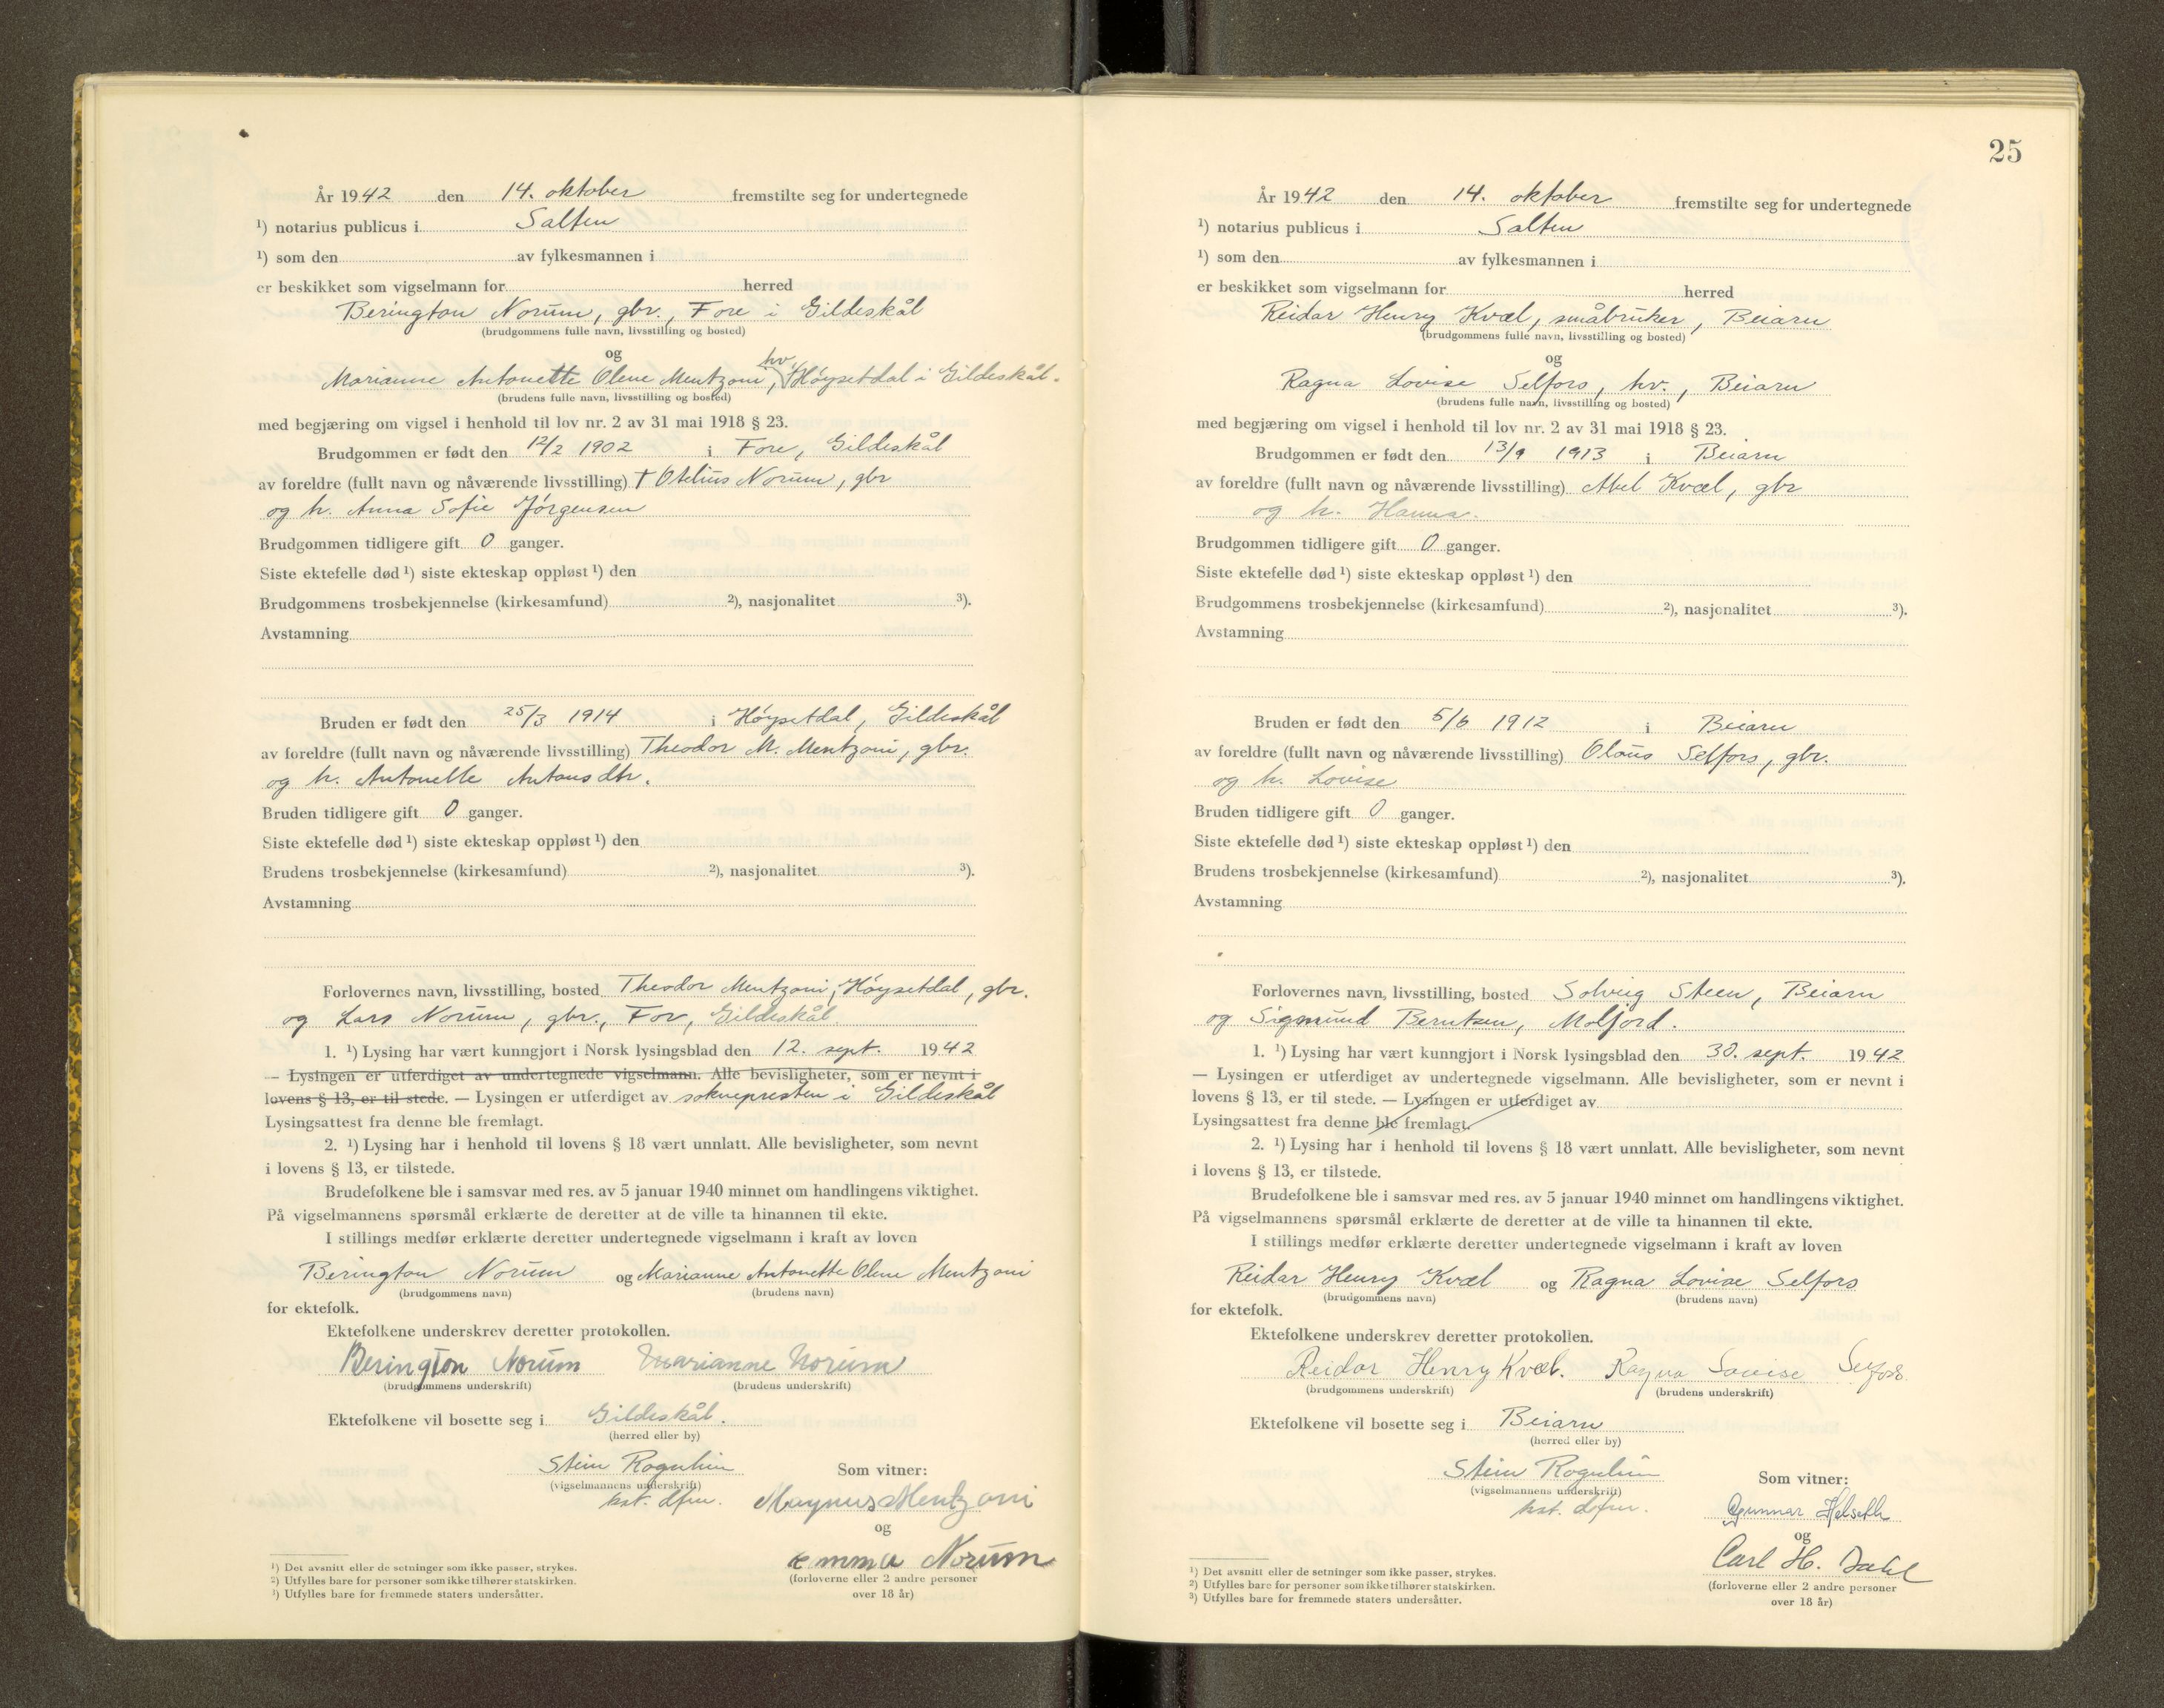 År 1942 den 14. oktober fremstilte seg for undertegnede
¹) notarius publicus i Salten
¹) som den av fylkesmannen i
er beskikket som vigselmann for herred
Berington Norum, gbr., Fore i Gildeskål
(brudgommens fulle navn, livsstilling og bosted)
og
hv.
Marianne Antonette Olene Mentzoni, Høysetdal i Gildeskål.
(brudens fulle navn, livsstilling og bosted)
med begjæring om vigsel i henhold til lov nr. 2 av 31 mai 1918 § 23.
Brudgommen er født den 12/2 1902 i Fore, Gildeskål
av foreldre (fullt navn og nåværende livsstilling) † Otelius Norum, gbr
og h. Anna Sofie Jørgensen
Brudgommen tidligere gift 0 ganger.
Siste ektefelle død ¹) siste ekteskap oppløst ¹) den
Brudgommens trosbekjennelse (kirkesamfund) ²), nasjonalitet ³).
Avstamning
Bruden er født den 25/3 1914 i Høysetdal, Gildeskål
av foreldre (fullt navn og nåværende livsstilling) Theodor M. Mentzoni, gbr.
og h. Antonette Antonsdtr.
Bruden tidligere gift 0 ganger.
Siste ektefelle død ¹) siste ekteskap oppløst ¹) den
Brudens trosbekjennelse (kirkesamfund) ²), nasjonalitet ³).
Avstamning
Forlovernes navn, livsstilling, bosted Theodor Mentzoni, Høysetdal, gbr.
og Lars Norum, gbr., For, Gildeskål.
1. ¹) Lysing har vært kunngjort i Norsk lysingsblad den 12. sept. 1942
— Lysingen er utferdiget av undertegnede vigselmann. Alle bevisligheter, som er nevnt i
lovens § 13, er til stede. — Lysingen er utferdiget av soknepresten i Gildeskål
Lysingsattest fra denne ble fremlagt.
2. ¹) Lysing har i henhold til lovens § 18 vært unnlatt. Alle bevisligheter, som nevnt
i lovens § 13, er tilstede.
Brudefolkene ble i samsvar med res. av 5 januar 1940 minnet om handlingens viktighet.
På vigselmannens spørsmål erklærte de deretter at de ville ta hinannen til ekte.
I stillings medfør erklærte deretter undertegnede vigselmann i kraft av loven
Berington Norum og Marianne Antonette Olene Mentzoni
(brudgommens navn) (brudens navn)
for ektefolk.
Ektefolkene underskrev deretter protokollen.
Berington Norum Marianne Norum
(brudgommens underskrift) (brudens underskrift)
Ektefolkene vil bosette seg i Gildeskål.
(herred eller by)
Stein Rognlien Som vitner:
(vigselmannens underskrift)
kst. dfm. Magnus Mentzoni
og
Emma Norum
(forloverne eller 2 andre personer
over 18 år)
¹) Det avsnitt eller de setninger som ikke passer, strykes.
²) Utfylles bare for personer som ikke tilhører statskirken.
³) Utfylles bare for fremmede staters undersåtter.
25
År 1942 den 14. oktober fremstilte seg for undertegnede
¹) notarius publicus i Salten
¹) som den av fylkesmannen i
er beskikket som vigselmann for herred
Reidar Henry Kvæl, småbruker, Beiarn
(brudgommens fulle navn, livsstilling og bosted)
og
Ragna Lovise Selfors, hv., Beiarn
(brudens fulle navn, livsstilling og bosted)
med begjæring om vigsel i henhold til lov nr. 2 av 31 mai 1918 § 23.
Brudgommen er født den 13/9 1913 i Beiarn
av foreldre (fullt navn og nåværende livsstilling) Abel Kvæl, gbr
og h. Hanna.
Brudgommen tidligere gift 0 ganger.
Siste ektefelle død ¹) siste ekteskap oppløst ¹) den
Brudgommens trosbekjennelse (kirkesamfund) ²), nasjonalitet ³).
Avstamning
Bruden er født den 5/6 1912 i Beiarn
av foreldre (fullt navn og nåværende livsstilling) Olaus Selfors, gbr.
og h. Lovise
Bruden tidligere gift 0 ganger.
Siste ektefelle død ¹) siste ekteskap oppløst ¹) den
Brudens trosbekjennelse (kirkesamfund) ²), nasjonalitet ³).
Avstamning
Forlovernes navn, livsstilling, bosted Solveig Steen, Beiarn
og Sigmund Berntsen, Molfjord.
1. ¹) Lysing har vært kunngjort i Norsk lysingsblad den 30. sept. 1942
— Lysingen er utferdiget av undertegnede vigselmann. Alle bevisligheter, som er nevnt i
lovens § 13, er til stede. — Lysingen er utferdiget av
Lysingsattest fra denne ble fremlagt.
2. ¹) Lysing har i henhold til lovens § 18 vært unnlatt. Alle bevisligheter, som nevnt
i lovens § 13, er tilstede.
Brudefolkene ble i samsvar med res. av 5 januar 1940 minnet om handlingens viktighet.
På vigselmannens spørsmål erklærte de deretter at de ville ta hinannen til ekte.
I stillings medfør erklærte deretter undertegnede vigselmann i kraft av loven
Reidar Henry Kvæl og Ragna Lovise Selfors
(brudgommens navn) (brudens navn)
for ektefolk.
Ektefolkene underskrev deretter protokollen.
Reidar Henry Kvæl. Ragna Lovise Selfors
(brudgommens underskrift) (brudens underskrift)
Ektefolkene vil bosette seg i Beiarn
(herred eller by)
Stein Rognlien Som vitner:
(vigselmannens underskrift)
kst. dfm. Gunnar Helseth
og
Carl H. Dahl
(forloverne eller 2 andre personer
over 18 år)
¹) Det avsnitt eller de setninger som ikke passer, strykes.
²) Utfylles bare for personer som ikke tilhører statskirken.
³) Utfylles bare for fremmede staters undersåtter.